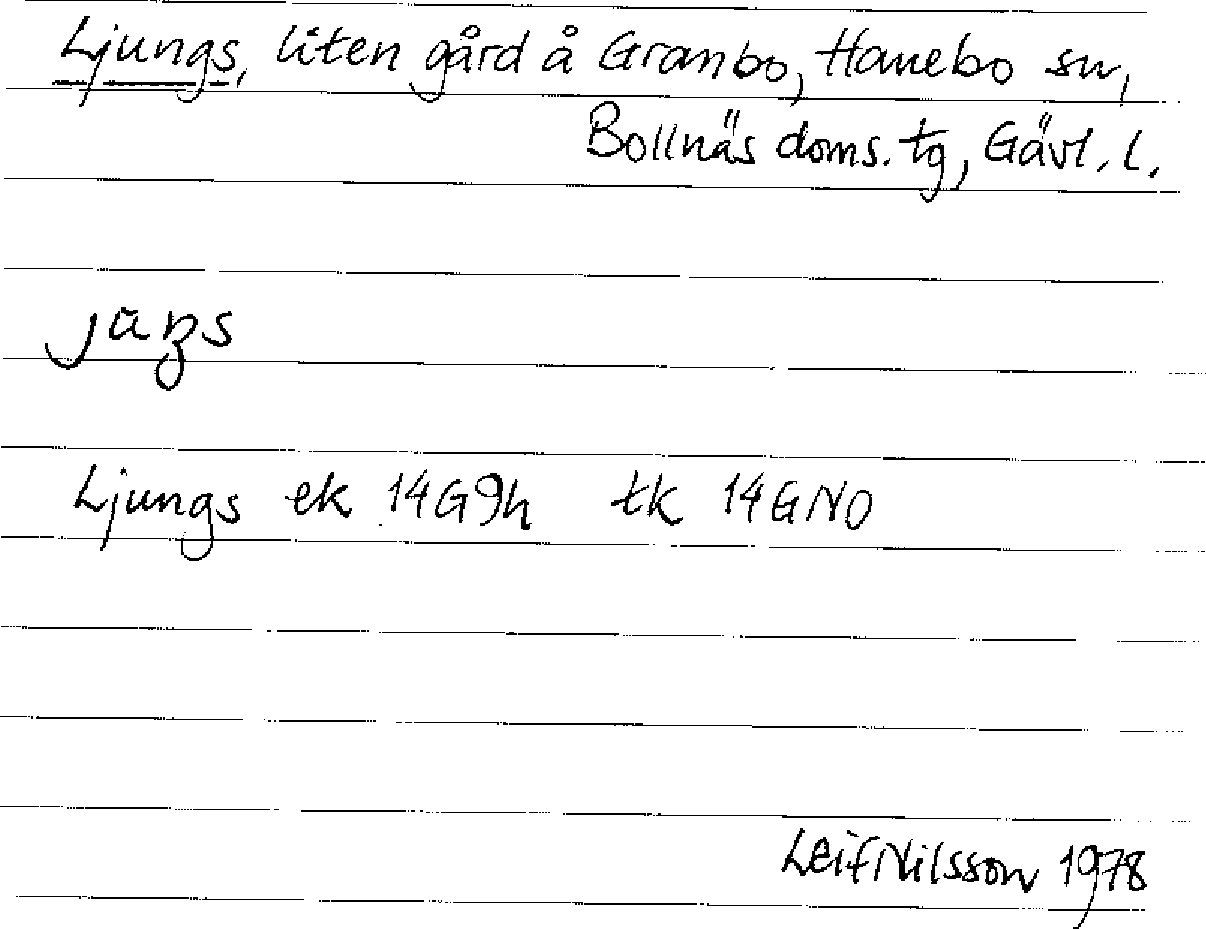 Ljungs, liten gård å Granbo, Hanebo sn,
Bollnäs doms. tg, Gävl. l.
Ljungs ek 14G9h tk 14GNO
Leif Nilsson 1978